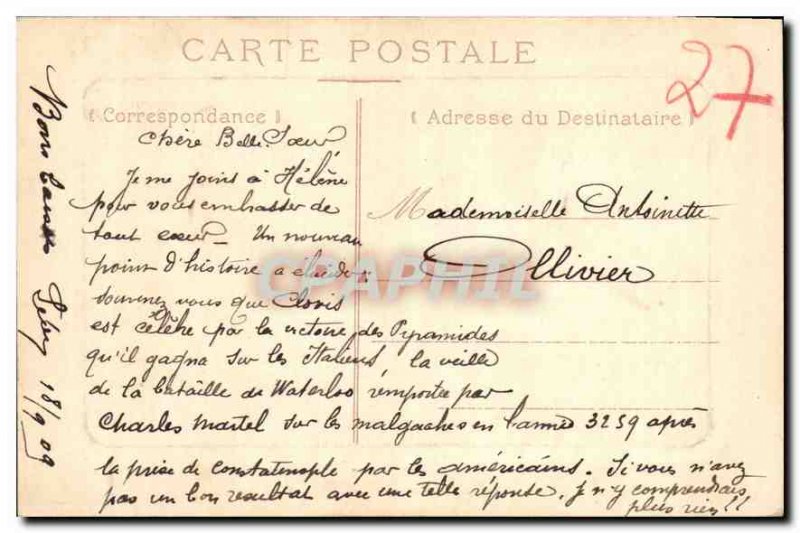 CARTE POSTALE
27
Correspondance
Adresse du Destinataire
Chère Belle-Sœur
Je me joins à Hélène
pour vous embrasser de
tout cœur - Un nouveau
point d'histoire a
souvenez vous que Clovis
est célèbre par la victoire des Pyramides
qu'il gagna sur les Italiens, la veille
de la bataille de Waterloo remportée par
Charles Martel sur les malgaches en l'année 3259 après
la prise de Constatinople par les américains. Si vous n'avez
pas un bon resultat avec une telle réponse, je n'y comprendrais
plus rien!!
Mademoiselle Antoinette
Ollivier
Bons baisers 18/9 09
CPAPHIL